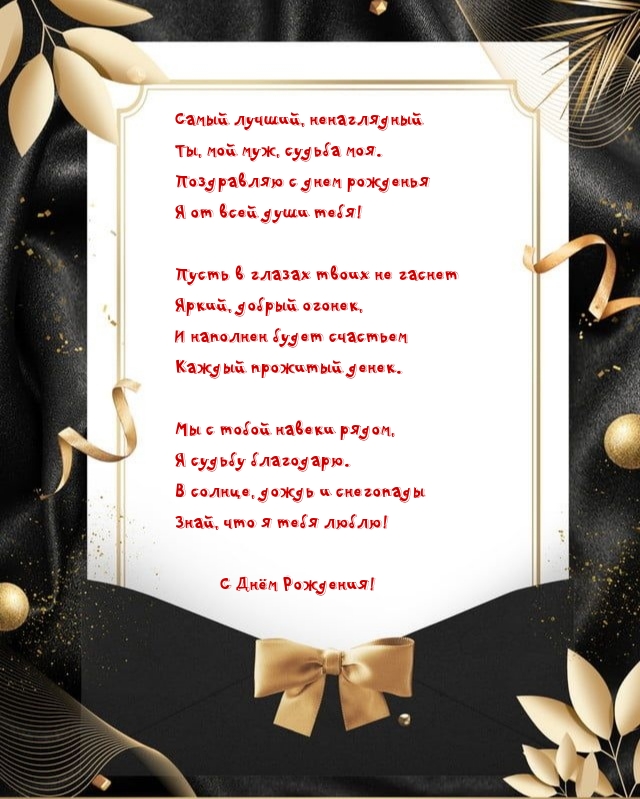 Самый лучший, ненаглядный
Ты, мой муж, судьба моя.
Поздравляю с днем рожденья
Я от всей души тебя!
Пусть в глазах твоих не гаснет
Яркий, добрый огонек,
И наполнен будет счастьем
Каждый прожитый денек.
Мы с тобой навеки рядом,
Я судьбу благодарю.
В солнце, дождь и снегопады
Знай, что я тебя люблю!
С Днём Рождения!